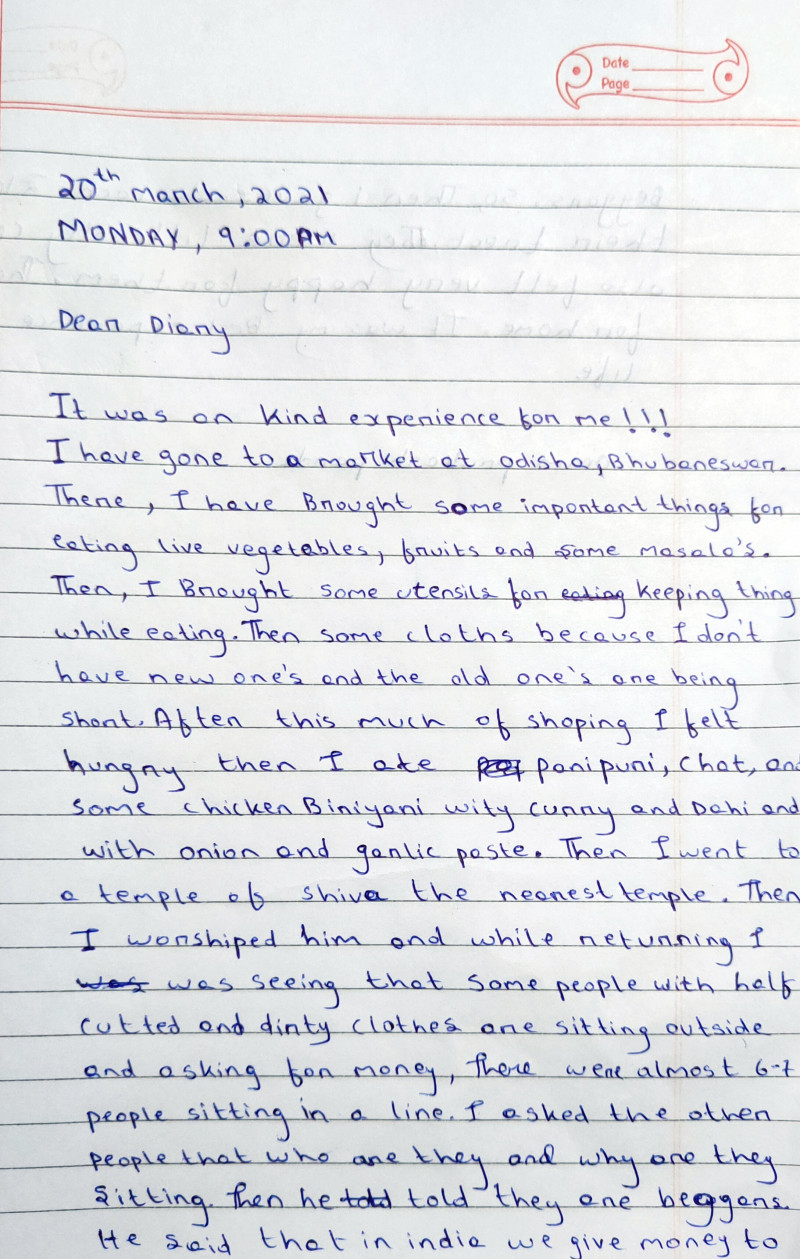 Date
Page
20th March, 2021
MONDAY, 9:00AM
Dear Diary
It was an kind experience for me!!!
I have gone to a market at odisha, Bhubaneswar.
There, I have Brought some important things for
eating live vegetables, fruits and some masala's.
Then, I Brought some utensils for eating keeping thing
while eating. Then some cloths because I don't
have new one's and the old one's are being
short. After this much of shoping I felt
hungry then I ate panipuri, Chat, and
some chicken Biriyani wity curry and Dahi and
with onion and garlic paste. Then I went to
a temple of shiva the nearest temple. Then
I worshiped him and while returning I
was was seeing that some people with half
cutted and dirty clothes are sitting outside
and asking for money, There were almost 6-7
people sitting in a line. I asked the other
people that who are they and why are they
sitting. Then he told told they are beggars.
He said that in india we give money to